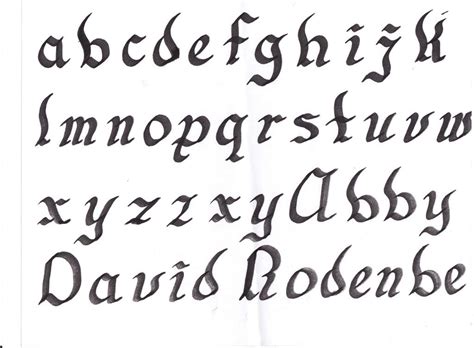 abcdefghijk
lmnopqrstuvw
xyzzxyAbby
David Rodenbe